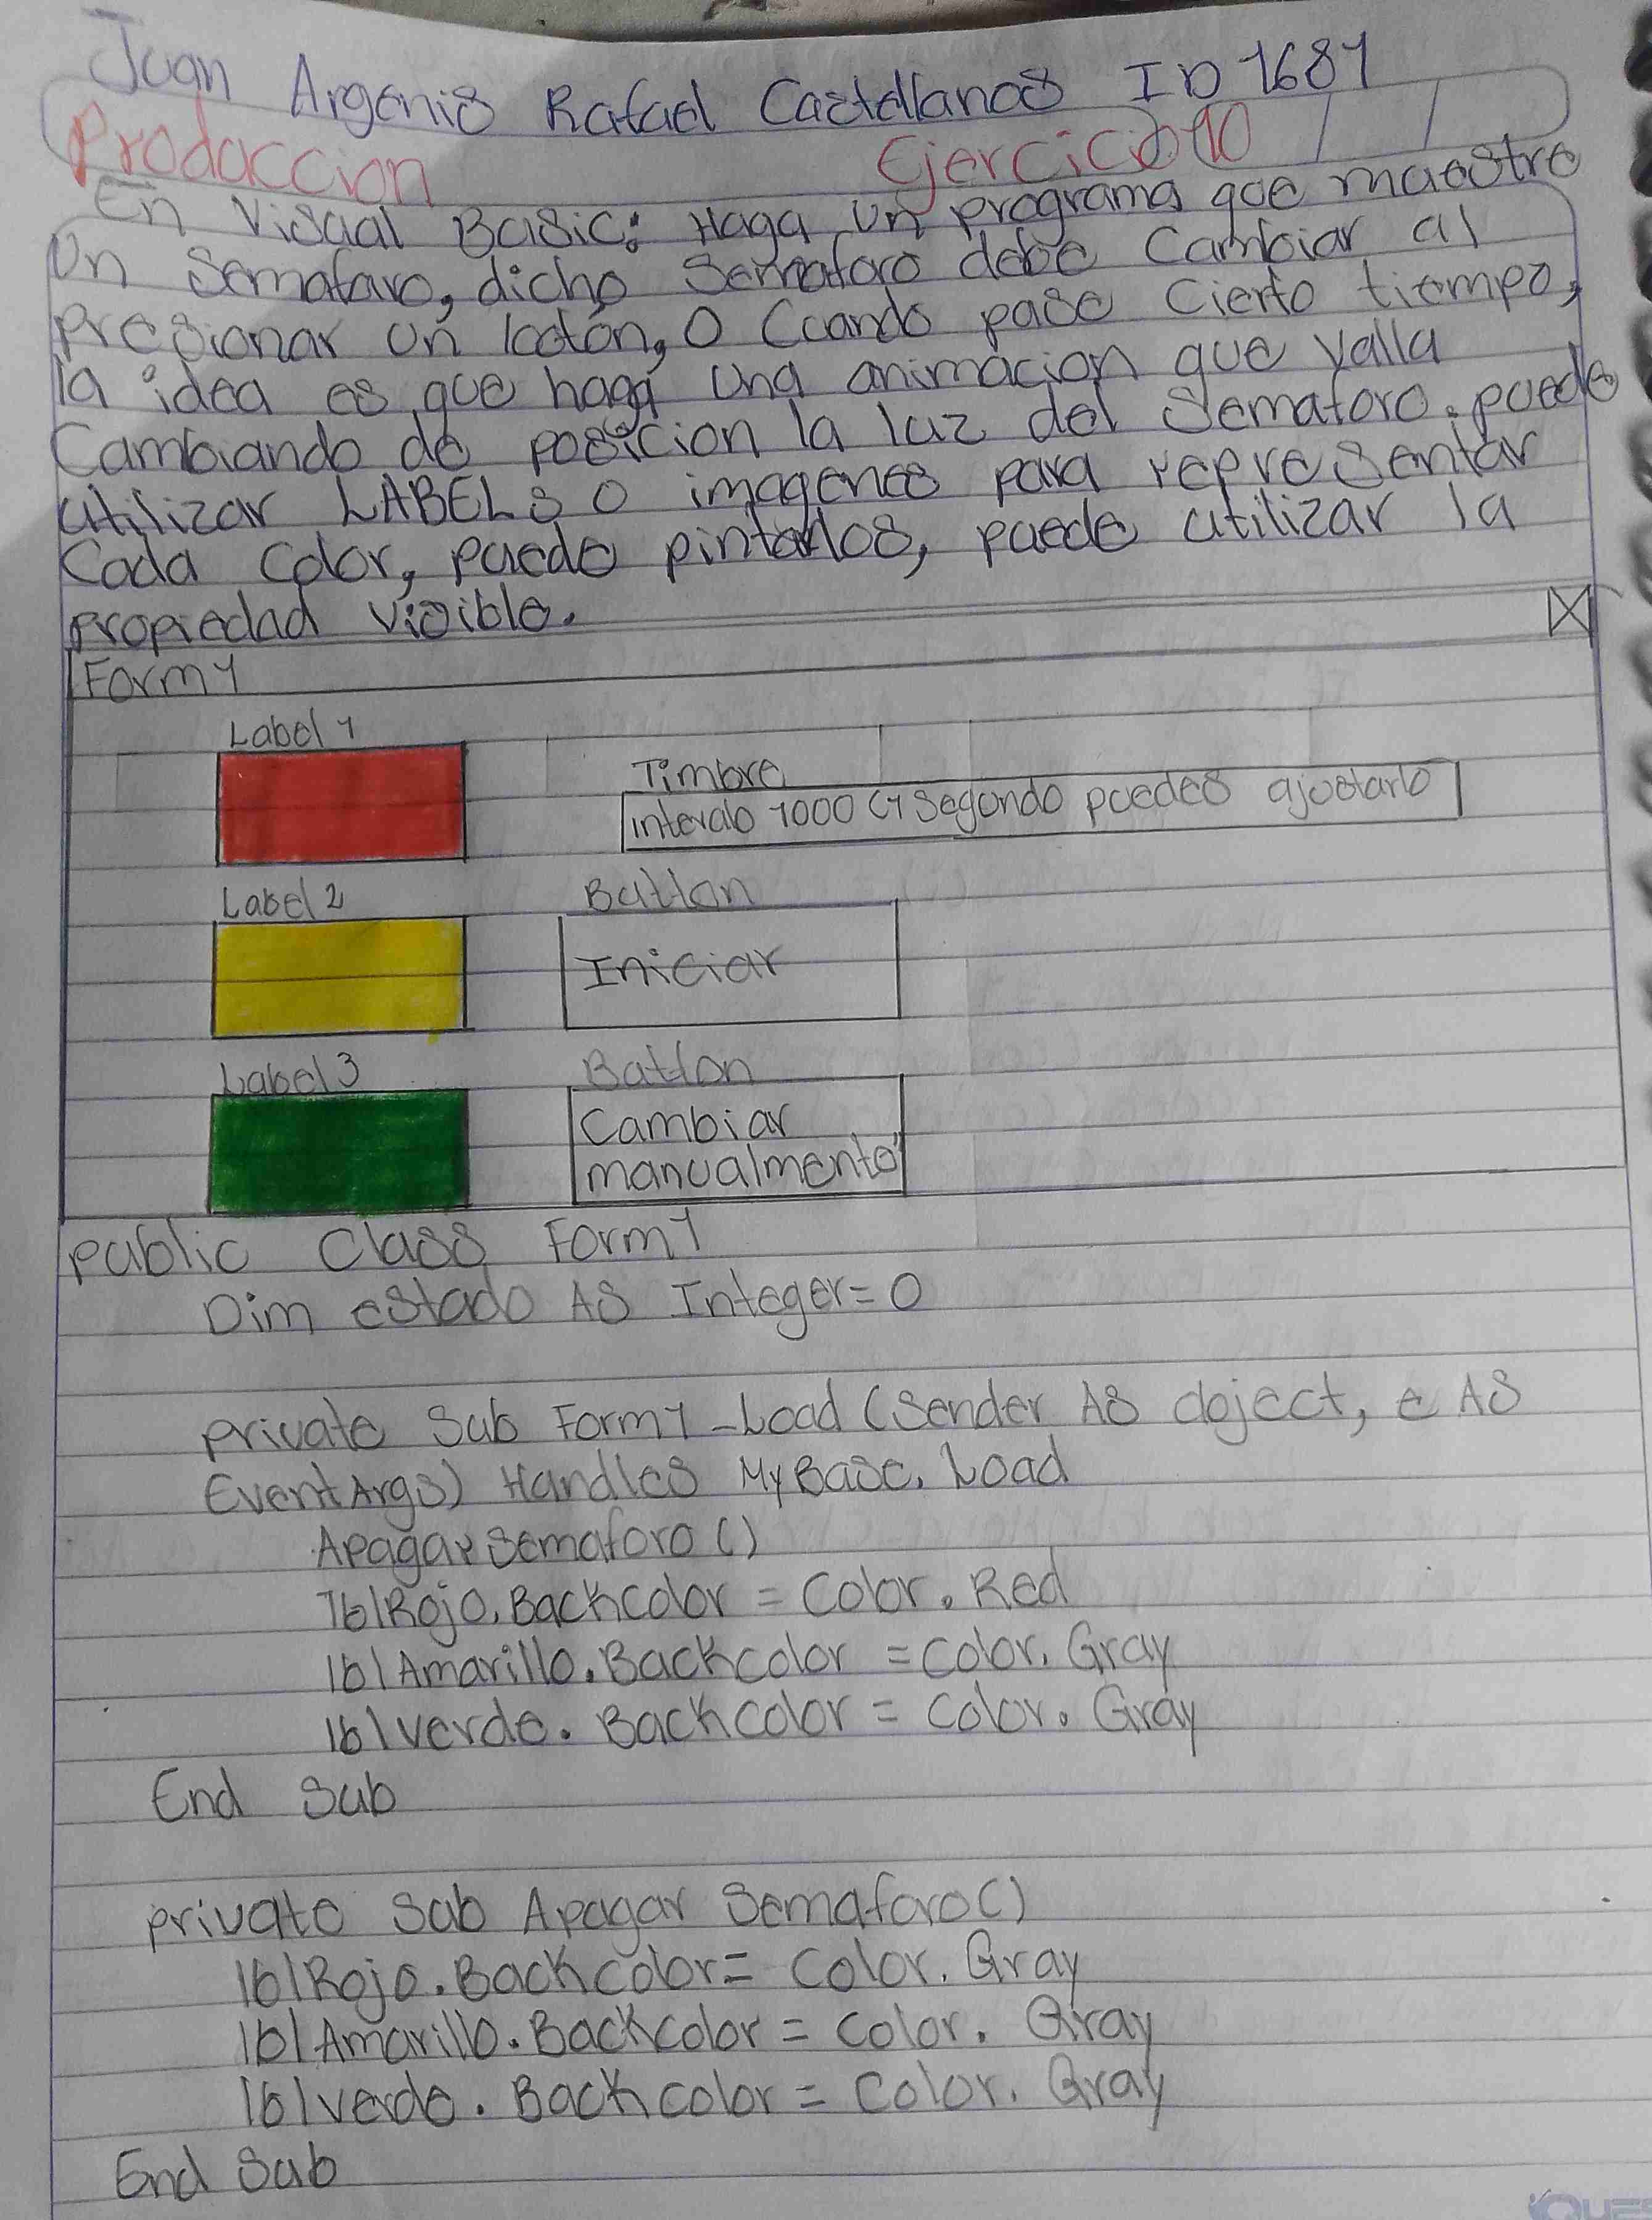 Juan Argenis Rafael Castellanos ID 1681
Produccion Ejercicio 10
En Visual Basic: Haga un programa que maestre
Un Semaforo, dicho Semaforo debe Cambiar al
Presionar un botón, o Cuando pase Cierto tiempo,
la idea es que haga una animacion que valla
Cambiando de posicion la luz del Semaforo. puede
utilizar LABELS o imagenes para representar
Cada Color, puede pintarlos, puede utilizar la
propiedad visible.
Form1
Label 1
Timbre
intervalo 1000 (1 Segundo puedes ajustarlo
Label 2
Button
Iniciar
Label 3
Button
Cambiar
manualmente
public Class Form1
Dim estado As Integer=0
private Sub Form1_Load (Sender As object, e As
EventArgs) Handles MyBase.Load
ApagarSemaforo()
lblRojo.Backcolor = Color.Red
lblAmarillo.Backcolor = color.Gray
lblverde.Backcolor = color.Gray
End Sub
private Sub Apagar Semaforo()
lblRojo.Backcolor = Color.Gray
lblAmarillo.Backcolor = color.Gray
lblverde.Backcolor = Color.Gray
End Sub